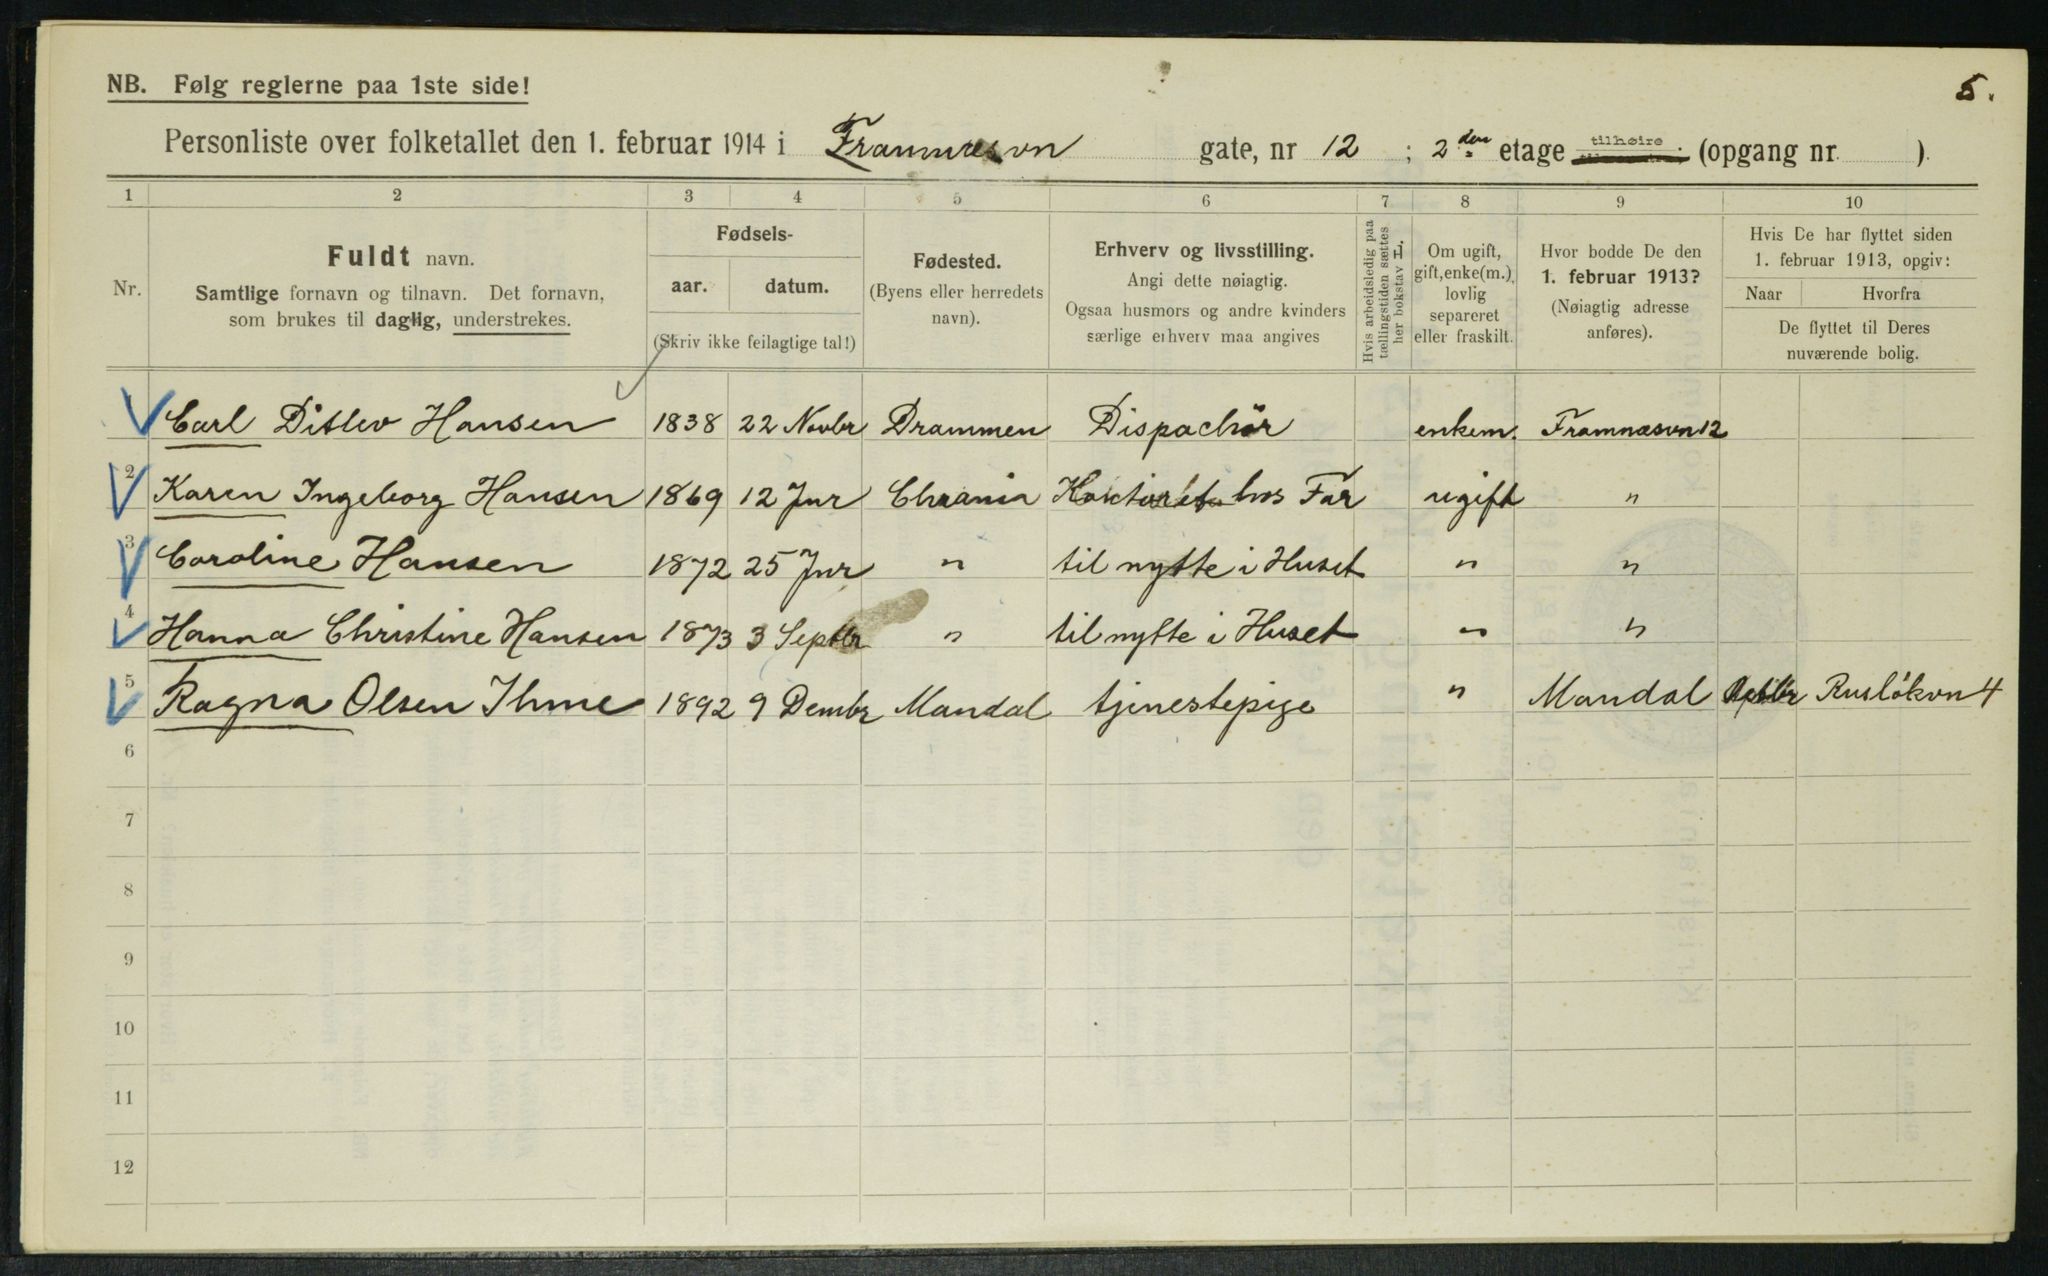 5.
NB. Følg reglerne paa 1ste side!
Personliste over folketallet den 1. februar 1914 i Framnæsvn gate, nr 12 ; 2den etage tilhøire (opgang nr. ).
1 2 3 4 5 6 7 8 9 10
Nr.
Fuldt navn.
Samtlige fornavn og tilnavn. Det fornavn,
som brukes til daglig, understrekes.
Fødsels-
aar. datum.
(Skriv ikke feilagtige tal!)
Fødested.
(Byens eller herredets
navn).
Erhverv og livsstilling.
Angi dette nøiagtig.
Ogsaa husmors og andre kvinders
særlige erhverv maa angives
Hvis arbeidsledig paa
tællingstiden sættes
her bokstav L.
Om ugift,
gift, enke(m.),
lovlig
separeret
eller fraskilt.
Hvor bodde De den
1. februar 1913?
(Nøiagtig adresse
anføres).
Hvis De har flyttet siden
1. februar 1913, opgiv:
Naar Hvorfra
De flyttet til Deres
nuværende bolig.
Carl Ditlev Hansen 1838 22 Novbr Drammen Dispachör enkem. Framnæsvn 12
2 Karen Ingeborg Hansen 1869 12 Jnr Chrania hos Far ugift "
3 Caroline Hansen 1872 25 Jnr " til nytte i Huset " "
4 Hanna Christine Hansen 1873 3 Septbr " til nytte i Huset " "
5 Ragna Olsen Ihme 1892 9 Dembr Mandal tjenestepige " Mandal Rusløkvn 4
6
7
8
9
10
11
12